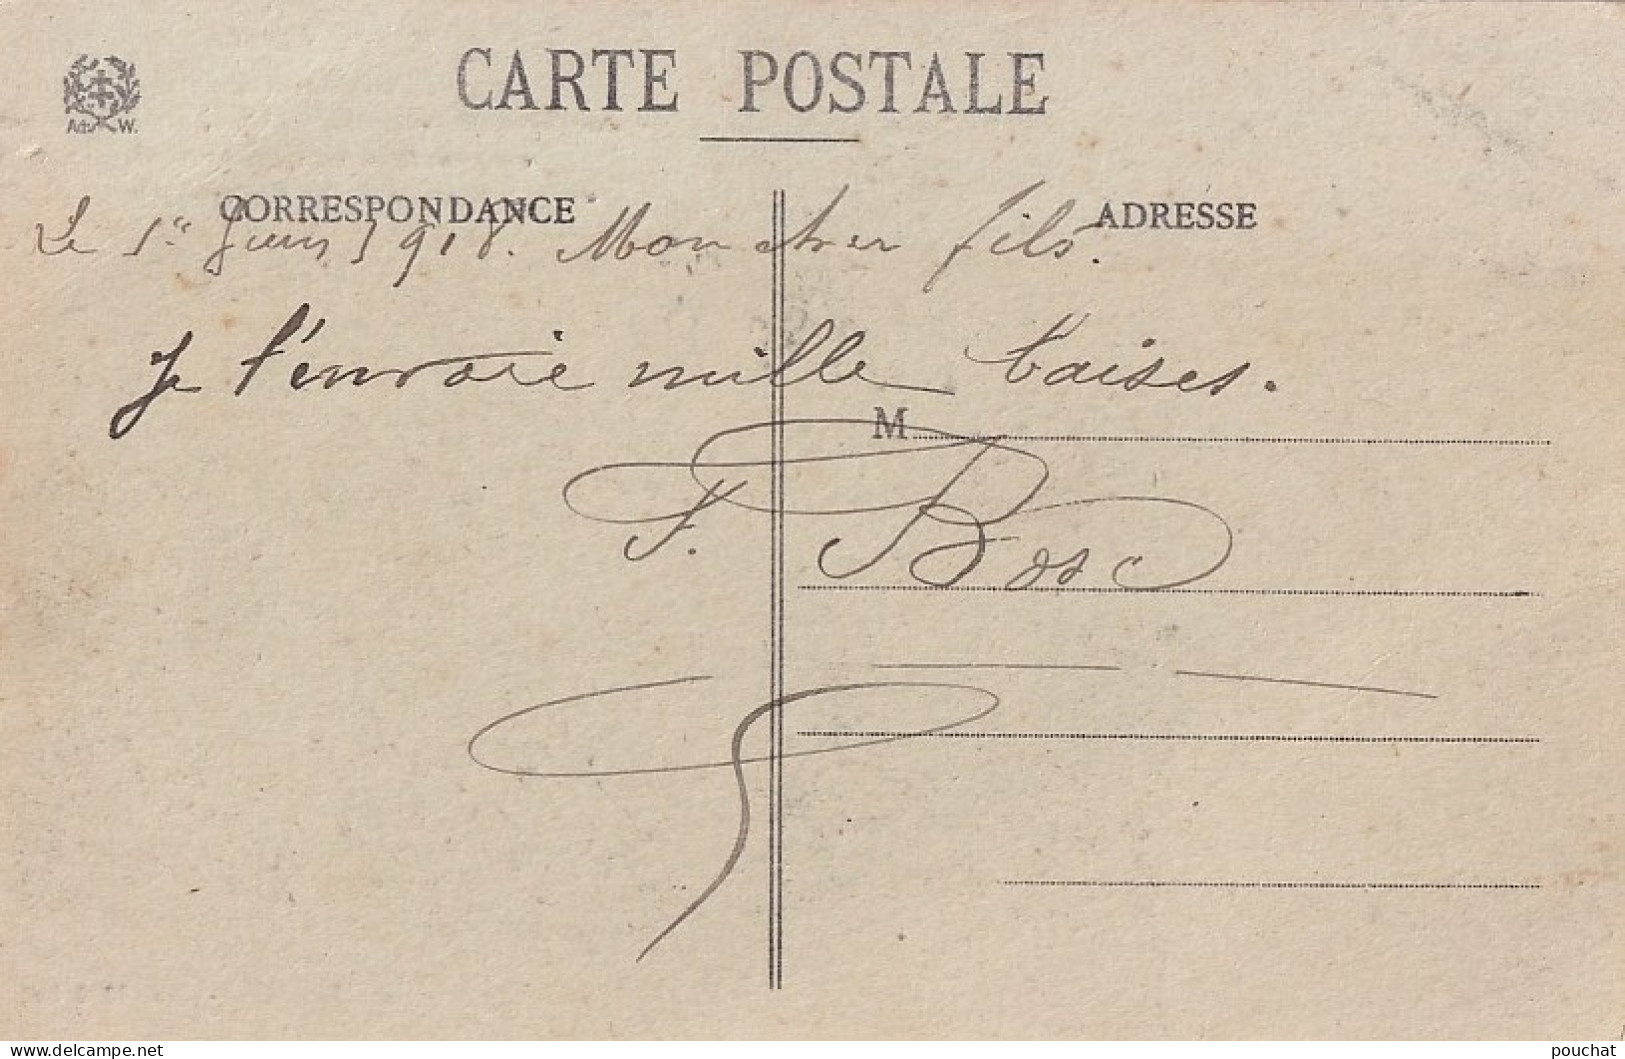 CARTE POSTALE
Ad. W.
CORRESPONDANCE
ADRESSE
Le 1er Juin 1918. Mon cher fils.
Je t'envoie mille baises.
M
F. Bosc
www.delcampe.net
pouchat